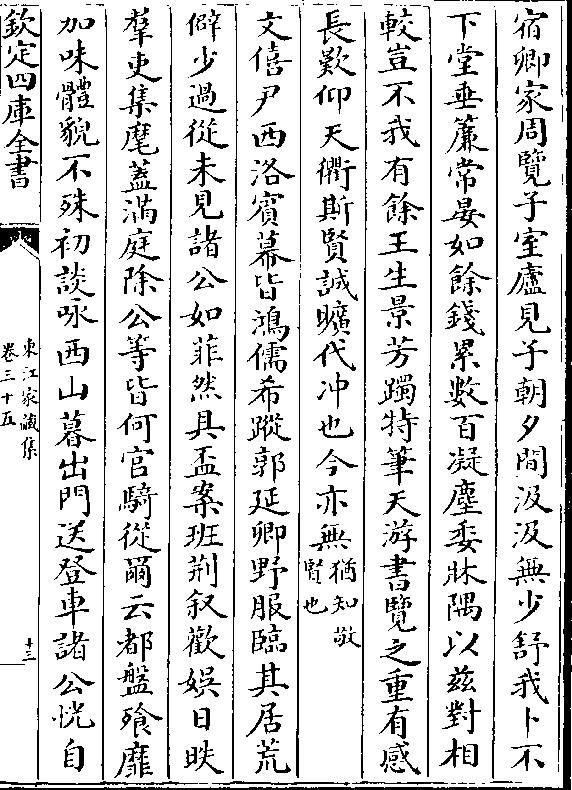 宿卿家周覽子室廬見子朝夕間汲汲無少舒我卜不
下堂垂簾常晏如餘錢累數百凝塵委牀隅以兹對相
較豈不我有餘王生景芳躅特筆天游書覽之重有感
長歎仰天衢斯賢誠曠代冲也今亦無猶知敬賢也
文僖尹西洛賓幕皆鴻儒希蹤郭延卿野服臨其居荒
僻少過從未見諸公如菲然具盃案班荆叙歡娯日昳
羣吏集麾蓋滿庭除公等皆何官騎從爾云都盤飱靡
加味體貌不殊初談咏西山暮出門送登車諸公恍自
欽定四庫全書
東江家藏集
卷三十五
十三